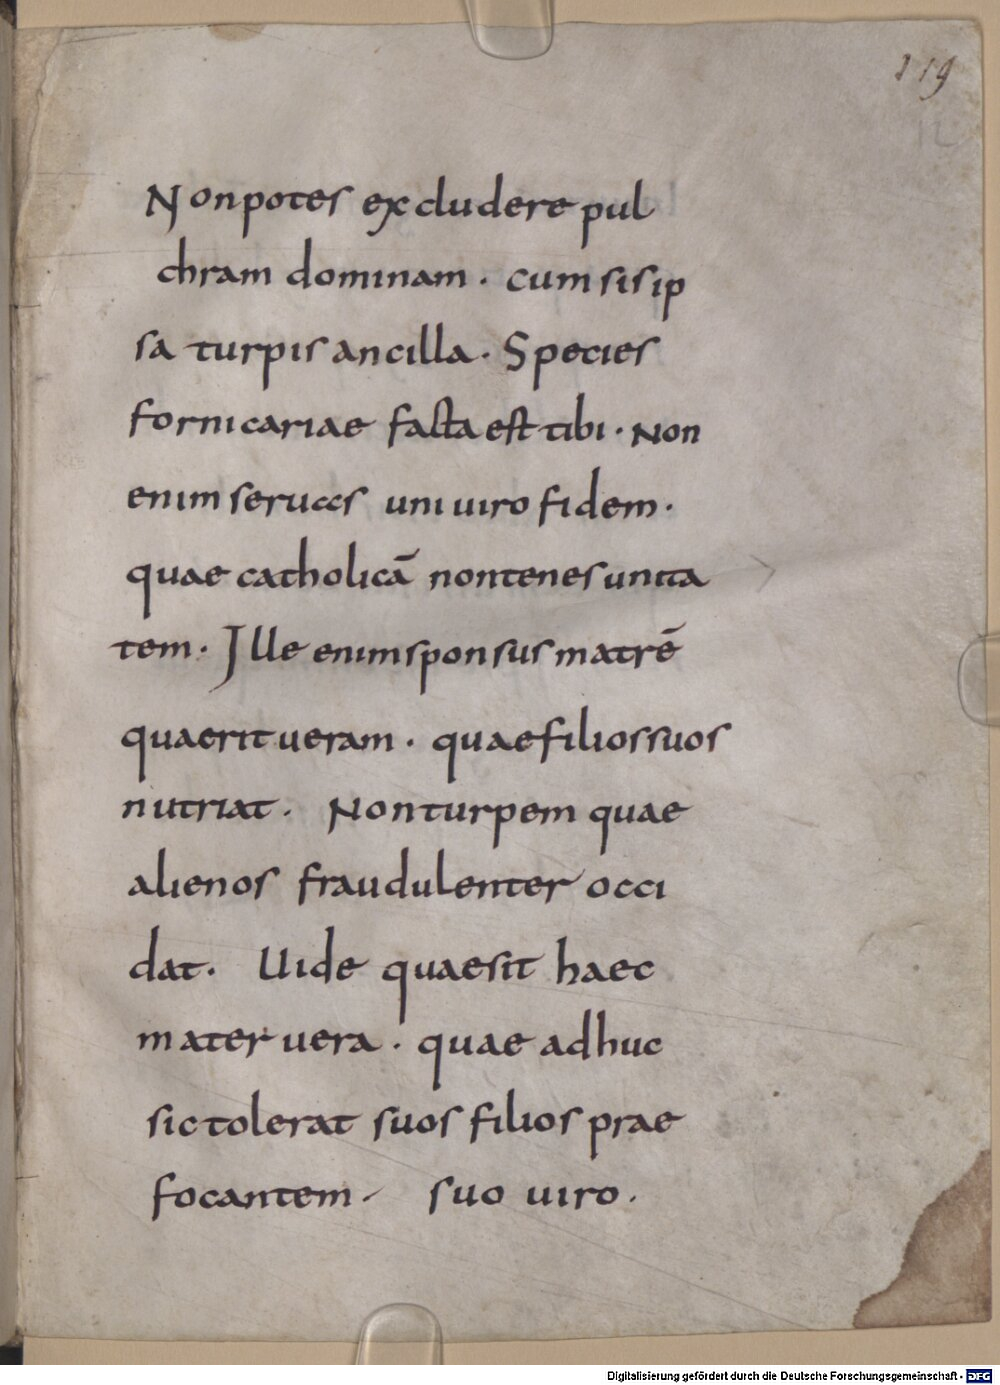 119
12
Non potes excludere pul
chram dominam · cum sis ip
sa turpis ancilla · Species
fornicariae facta est tibi · Non
enim seruas uni uiro fidem ·
quae catholicā non tenes unita
tem · Ille enim sponsus matrē
quaerit ueram · quae filios suos
nutriat · Non turpem quae
alienos fraudulenter occi
dat · Uide quae sit haec
mater uera · quae adhuc
sic tolerat suos filios prae
focantem · suo uiro ·
Digitalisierung gefördert durch die Deutsche Forschungsgemeinschaft - DFG